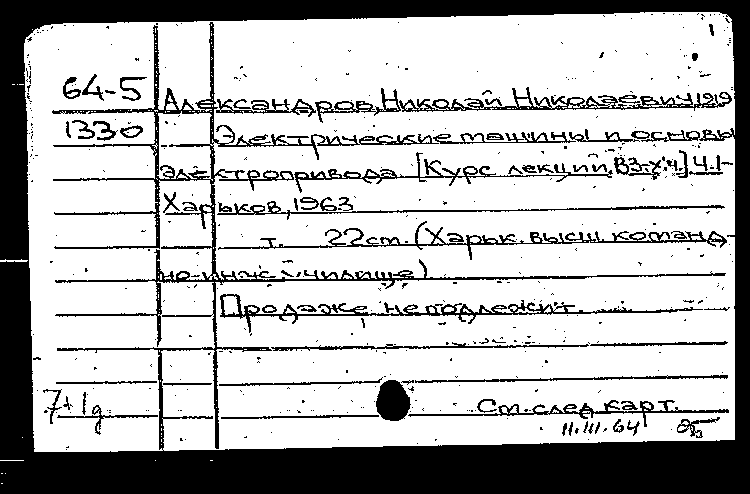 1
64-5 Александров, Николай Николаевич, 1919
1330 Электрические машины и основы
электропривода. [Курс лекций. В 3-х ч.] Ч.1-
Харьков, 1963
т. 22 см. (Харьк. высш. команд-
но-инж. училище)
Продаже не подлежит.
7+1д
См. след. карт.
11.III.64